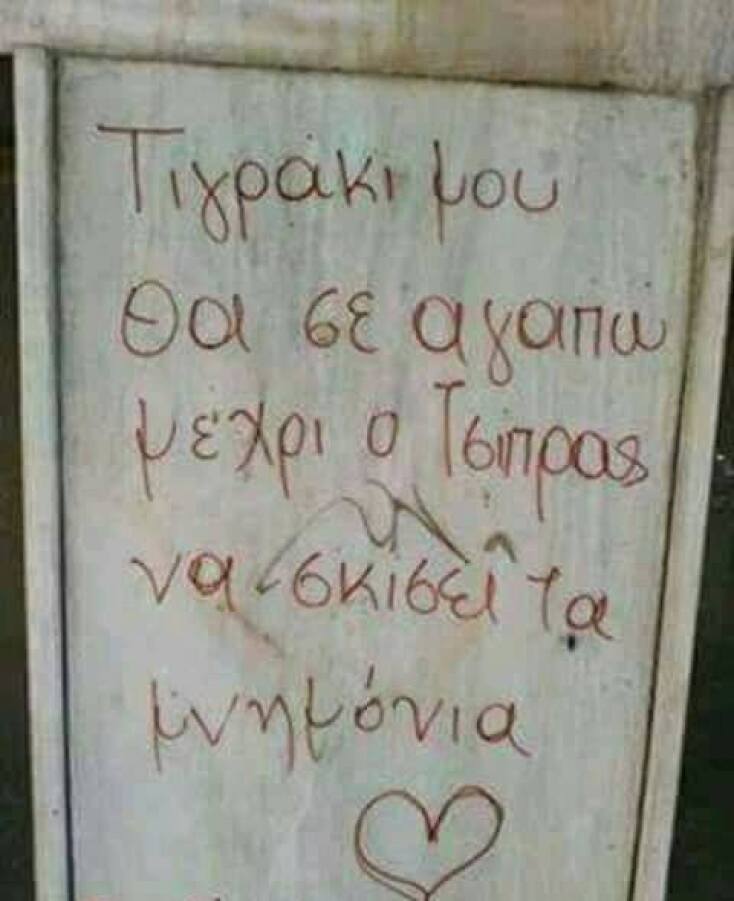 Τιγράκι μου
Θα σε αγαπω
μέχρι ο Τσιπρας
να σκίσει τα
μνημόνια